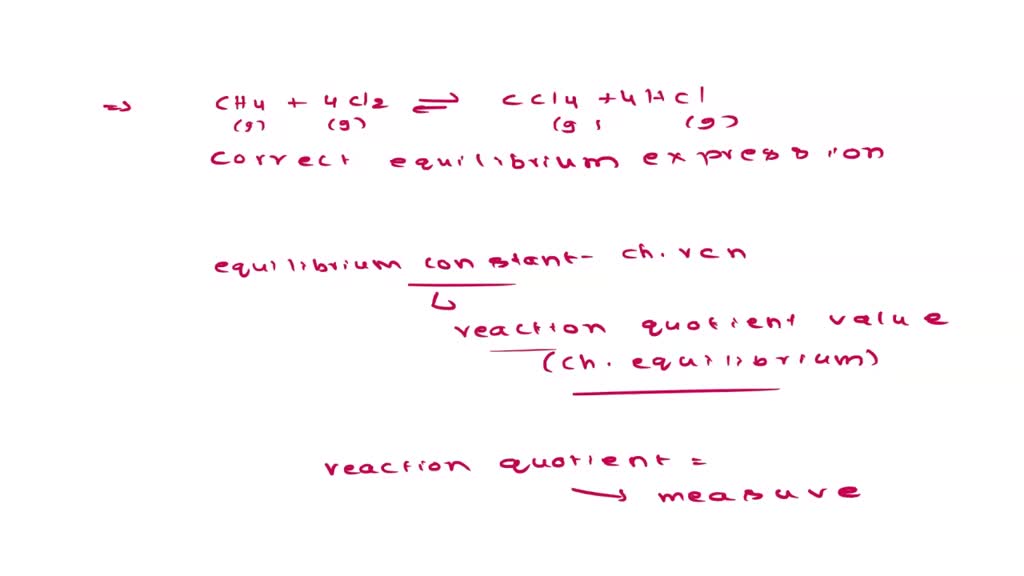 ⇒ CH4 + 4Cl2 ⇌ CCl4 + 4HCl
(g) (g) (g) (g)
correct equilibrium expression
equilibrium constant - ch. rcn
↳
reaction quotient value
(ch. equilibrium)
reaction quotient =
→ measure